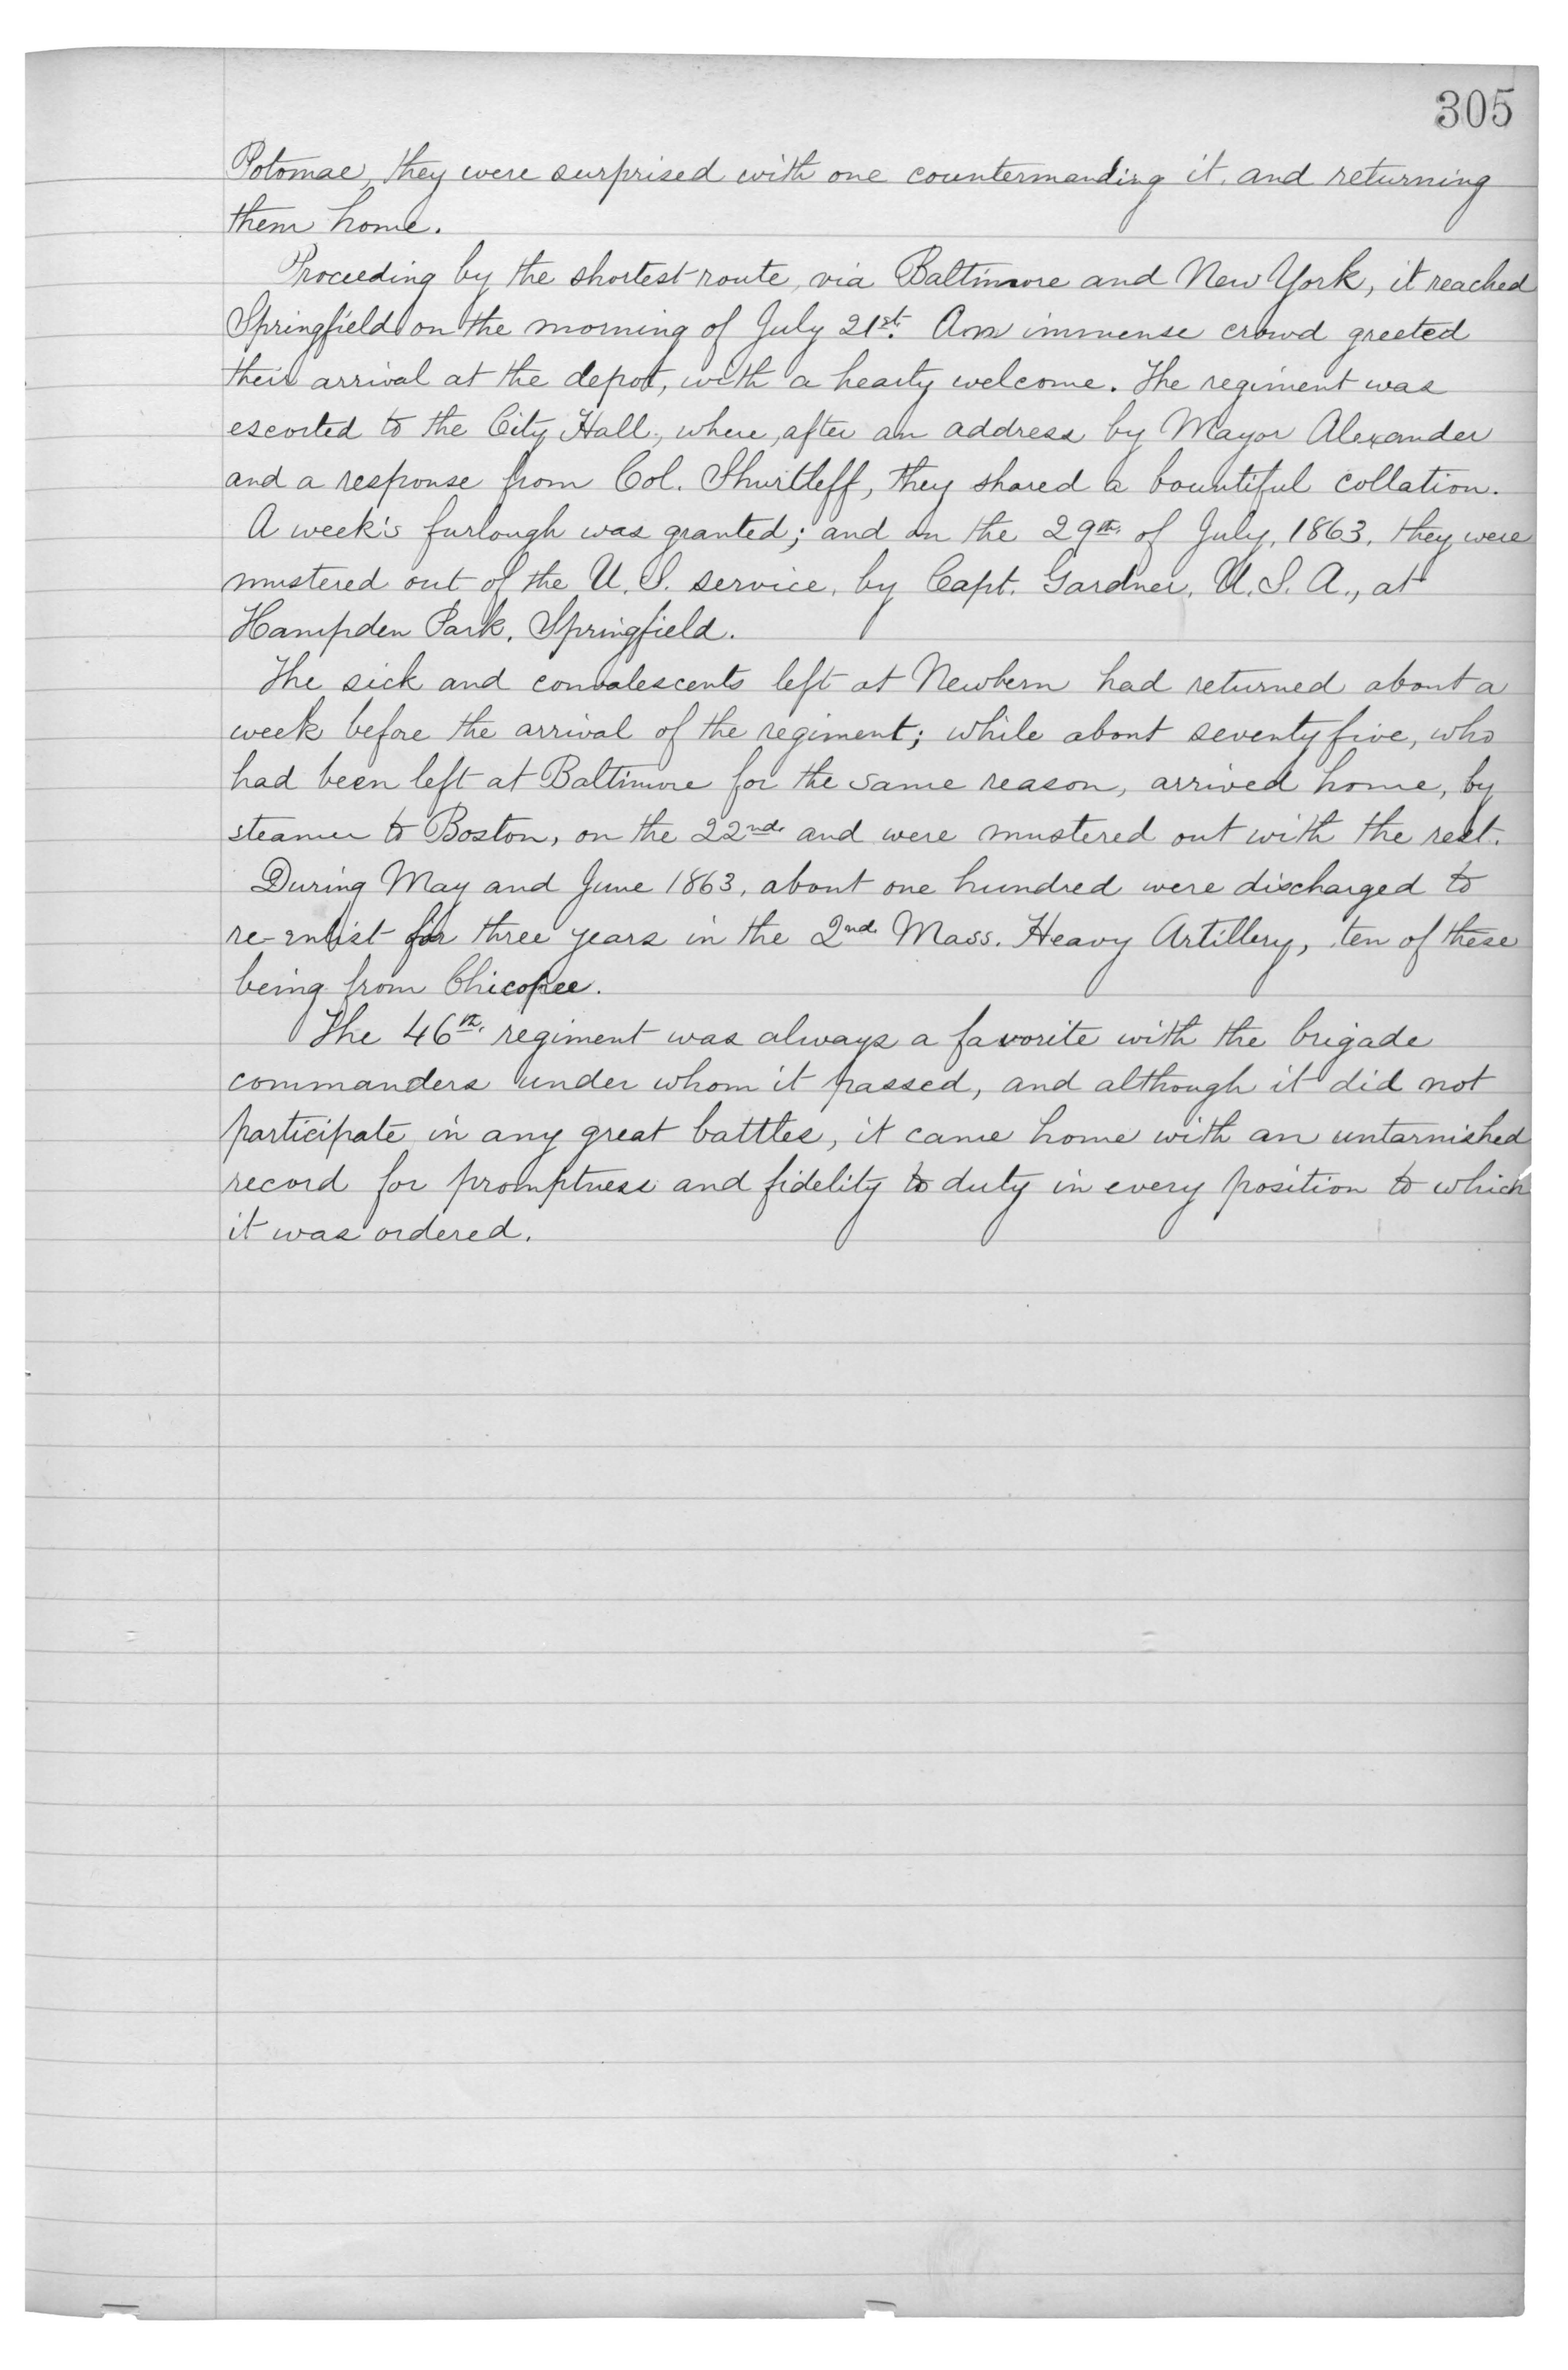 305
Potomac, they were surprised with one countermanding it, and returning
them home.
Proceeding by the shortest route, via Baltimore and New York, it reached
Springfield on the morning of July 21st. An immense crowd greeted
their arrival at the depot, with a hearty welcome. The regiment was
escorted to the City Hall, where, after an address by Mayor Alexander
and a response from Col. Shurtleff, they shared a bountiful collation.
A week's furlough was granted; and on the 29th. of July, 1863, they were
mustered out of the U.S. service, by Capt. Gardner, U.S.A., at
Hampden Park, Springfield.
The sick and convalescents left at Newbern had returned about a
week before the arrival of the regiment; while about seventy five, who
had been left at Baltimore for the same reason, arrived home, by
steamer to Boston, on the 22nd. and were mustered out with the rest.
During May and June 1863, about one hundred were discharged to
re-enlist for three years in the 2nd. Mass. Heavy Artillery, ten of these
being from Chicopee.
The 46th. regiment was always a favorite with the brigade
commanders under whom it passed, and although it did not
participate in any great battles, it came home with an untarnished
record for promptness and fidelity to duty in every position to which
it was ordered.